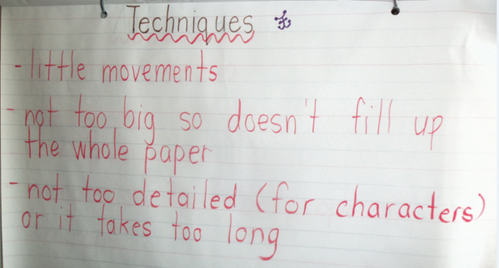 Techniques
- little movements
- not too big so doesn't fill up
the whole paper
- not too detailed (for characters)
or it takes too long